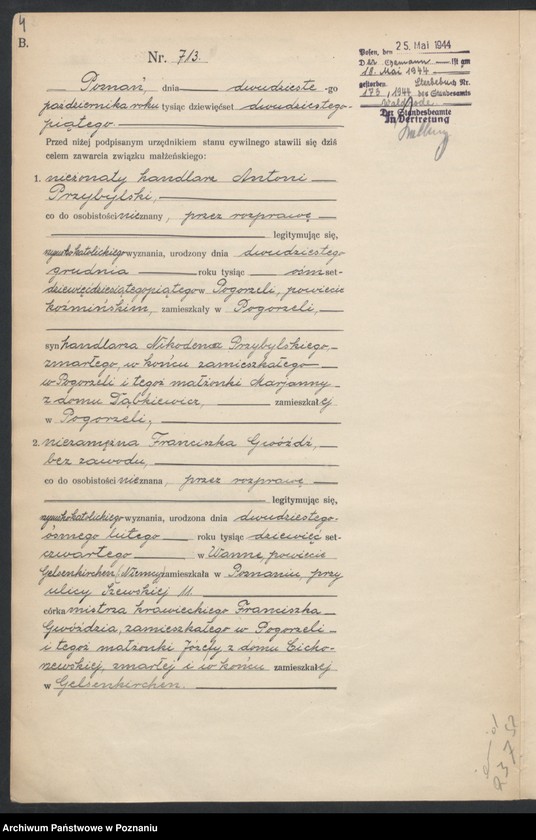 4
B.
Nr. 713.
Posen, den 25. Mai 1944
Der Ehemann ist am
18. Mai 1944
gestorben. Sterbebuch Nr.
173, 1944 des Standesamts
Der Standesbeamte
In Vertretung
Poznań, dnia dwudzieste -go
października roku tysiąc dziewięćset dwudziestego-
piątego
Przed niżej podpisanym urzędnikiem stanu cywilnego stawili się dziś
celem zawarcia związku małżeńskiego:
1. nieżonaty handlarz Antoni
Przybylski,
co do osobistości nieznany, przez rozprawę
legitymując się,
rzymskokatolickiego wyznania, urodzony dnia dwudziestego
grudnia roku tysiąc ośm set-
dziewięćdziesiątego piątego w Pogorzeli, powiecie
koźmińskim, zamieszkały w Pogorzeli,
syn handlarza Nikodema Przybylskiego,
zmarłego, w końcu zamieszkałego
w Pogorzeli i tegoż małżonki Marjanny
z domu Dąbkiewicz, zamieszkałej
w Pogorzeli,
2. niezamężna Franciszka Gwóźdź,
bez zawodu,
co do osobistości nieznana, przez rozprawę
legitymując się,
rzymskokatolickiego wyznania, urodzona dnia dwudziestego-
ósmego lutego roku tysiąc dziewięć set-
czwartego w Wanne, powiecie
Gelsenkirchen (Niemcy) zamieszkała w Poznaniu, przy
ulicy Szewskiej 11.
córka mistrza krawieckiego Franciszka
Gwóździa, zamieszkałego w Pogorzeli
i tegoż małżonki Józefy z domu Cicho-
szewskiej, zmarłej i w końcu zamieszkałej
w Gelsenkirchen.
Archiwum Państwowe w Poznaniu